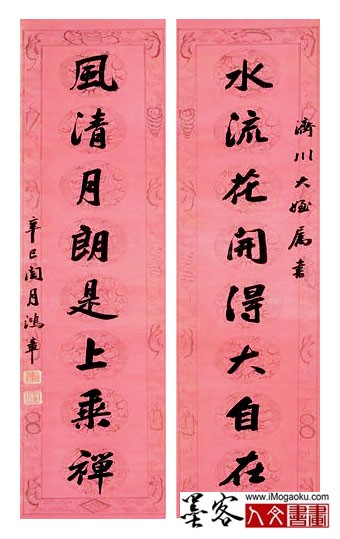 濟川大姪屬書
水流花開得大自在
風清月朗是上乘禪
辛巳閏月鴻章
墨客
www.iMogaoku.com
人文書畫